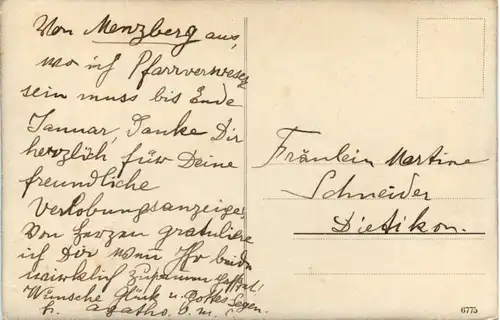 Von Menzberg aus,
wo ich Pfarrverweser
sein muss bis Ende
Januar, Danke Dir
herzlich für Deine
freundliche
Verlobungsanzeige!
Von Herzen gratuliere
ich Dir wenn Ihr beide
wirklich zusammen passt!
Wünsche Glück u. Gottes Segen.
Fräulein Martine
Schneider
Dietikon.
6775